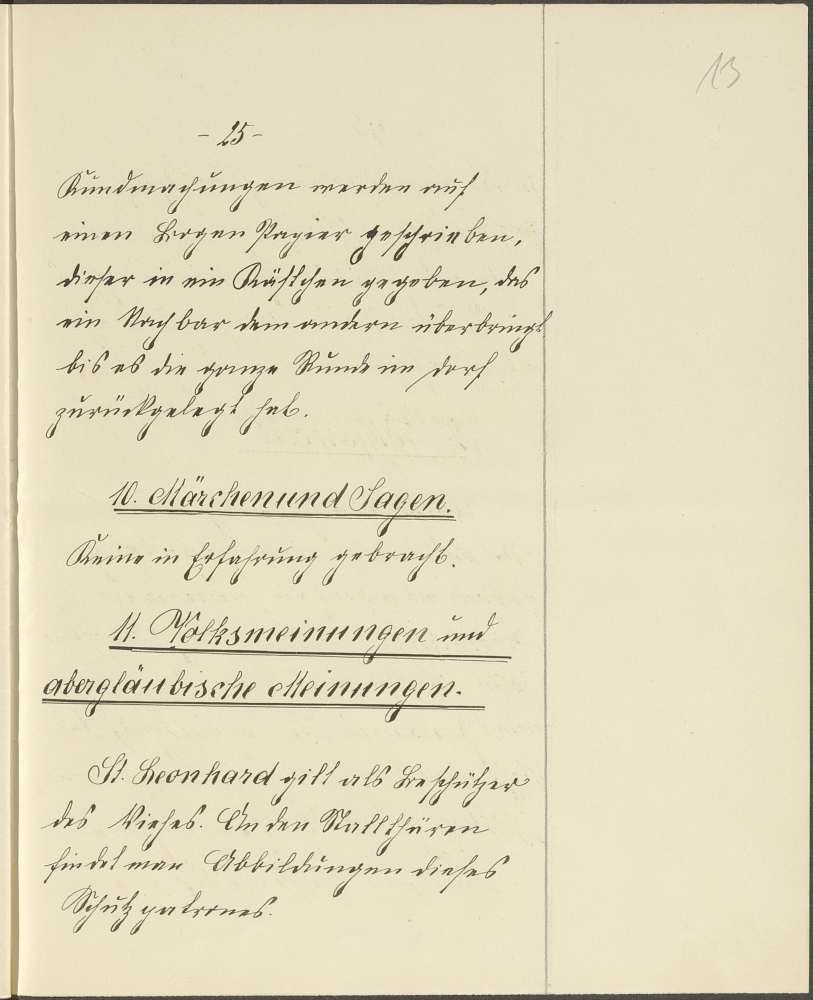 13
- 25 -
Kundmachungen werden auf
einen Bogen Papier geschrieben,
dieser in ein Kästchen gegeben, das
ein Nachbar dem andern überbringt
bis es die ganze Runde im Dorf
zurückgelegt hat.
10. Märchen und Sagen.
Keine in Erfahrung gebracht.
11. Volksmeinungen und
abergläubische Meinungen.
St. Leonhard gilt als Beschützer
des Viehes. An den Stallthüren
findet man Abbildungen dieses
Schutzpatrones.